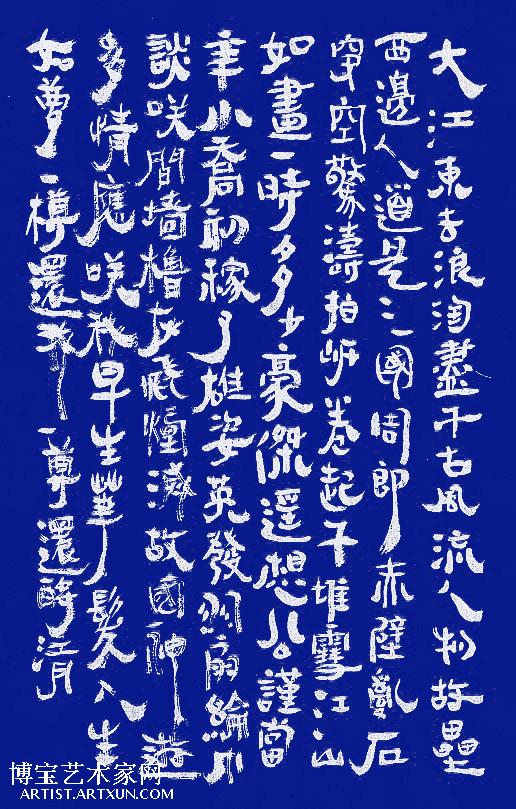 大江東去浪淘盡千古風流人物故壘
西邊人道是三國周郎赤壁亂石
穿空驚濤拍岸卷起千堆雪江山
如畫一時多少豪傑遥想公謹當
年小喬初稼了雄姿英發羽扇綸巾
談咲間墙櫓灰飛煙滅故國神遊
多情應咲我早生華髮人生
如夢一樽還一尊還酹江月
博宝艺术家网
ARTIST.ARTXUN.COM